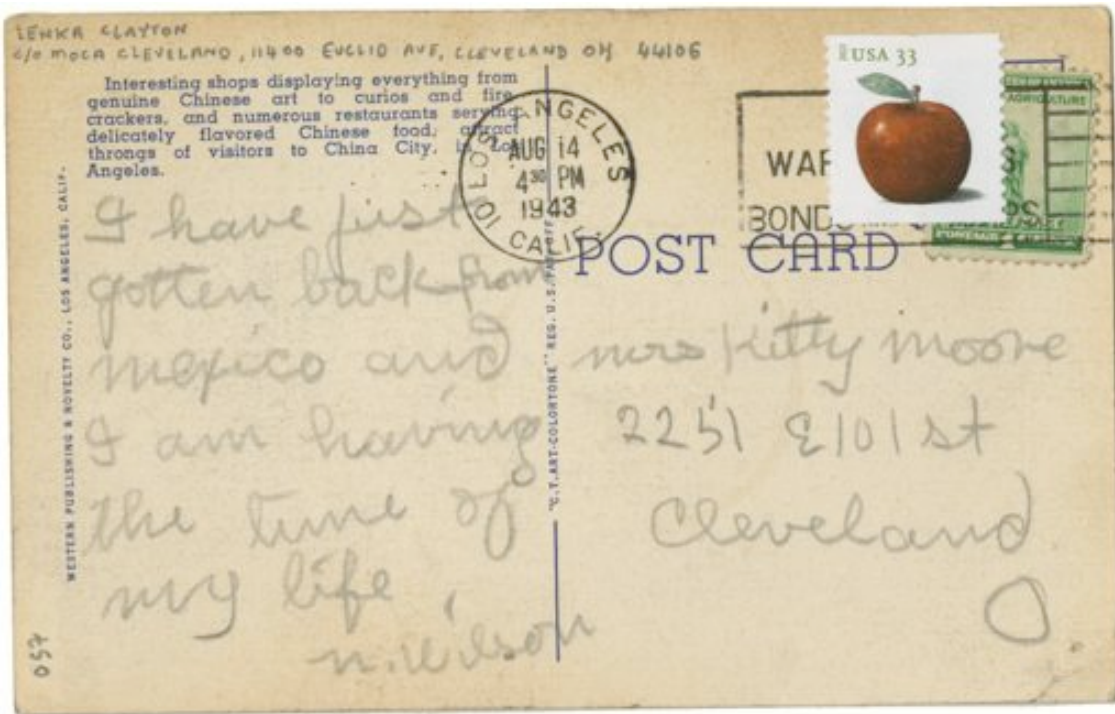 LENKA CLAYTON
c/o MOCA CLEVELAND, 11400 EUCLID AVE, CLEVELAND OH 44106
Interesting shops displaying everything from
genuine Chinese art to curios and fire
crackers, and numerous restaurants serving
delicately flavored Chinese food, attract
throngs of visitors to China City, in Los
Angeles.
LOS ANGELES
AUG 14
4 30 PM
1943
101 CALIF.
WAR
BONDS
USA 33
AGRICULTURE
POSTAGE
POST CARD
WESTERN PUBLISHING & NOVELTY CO., LOS ANGELES, CALIF.
"C.T. ART-COLORTONE" REG. U.S. PAT. OFF.
I have just
gotten back from
mexico and
I am having
the time of
my life,
n. Wilson
mrs Kitty Moore
2251 E 101 st
Cleveland
O.
057